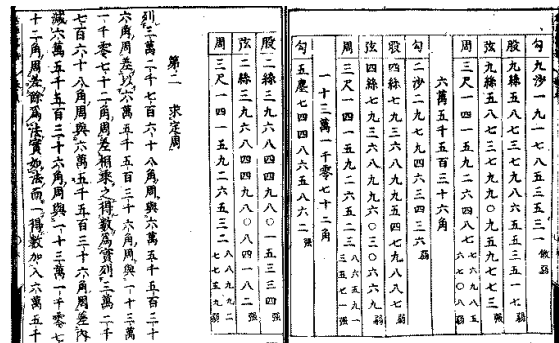 勾九沙一九一七八五三五三一微弱
股九絲五八七三七九八六五五三五一七弱
弦九絲五八七三七九九〇九五九七七三強
周三尺一四一五九二六四八七
六萬五千五百三十六角
勾二沙二九七九四六三四三六弱
股四絲七九三六八九九五四七九八八七弱
弦四絲七九三六八九九六〇三〇六六九弱
周三尺一四一五九二六五二三
一十三萬一千零七十二角
勾五塵七四四八六五八六二強
股二絲三九六八四四九八〇一五三三四弱
弦二絲三九六八四四九八〇八四一八二強
周三尺一四一五九二六五三二
第二 求定周
列三萬二千七百六十八角周與六萬五千五百三十
六角周差以六萬五千五百三十六角周與一十三萬
一千零七十二角周差相乘之得數爲實列三萬二千
七百六十八角周與六萬五千五百三十六角周差內
減六萬五千五百三十六角周與一十三萬一千零七
十二角周差餘爲法實如法而一得數加入六萬五千